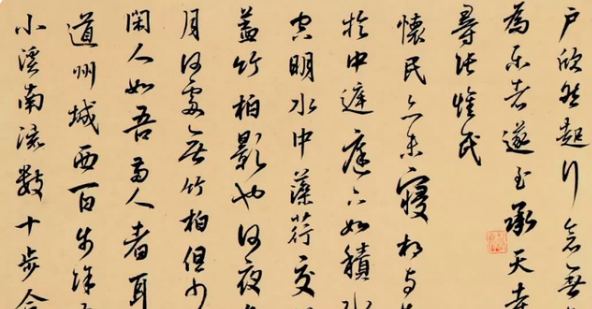 户欣然起行念無
為乐者遂至承天寺
尋张懷民
懷民亦未寢相与
於中庭庭下如積水
空明水中藻荇交
蓋竹柏影也何夜
月何處无竹柏但少
闲人如吾两人者耳
道州城西百步馀
小溪南流數十步合